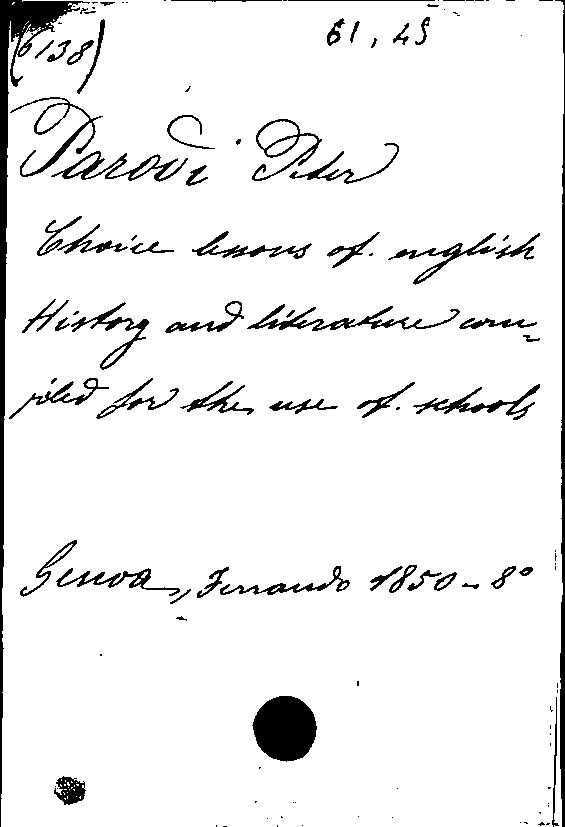 (6138)
61, 45
Parodi Peter
Choice lessons of english
History and literature com=
piled for the use of schools
Genova, Ferrando 1850 - 8°